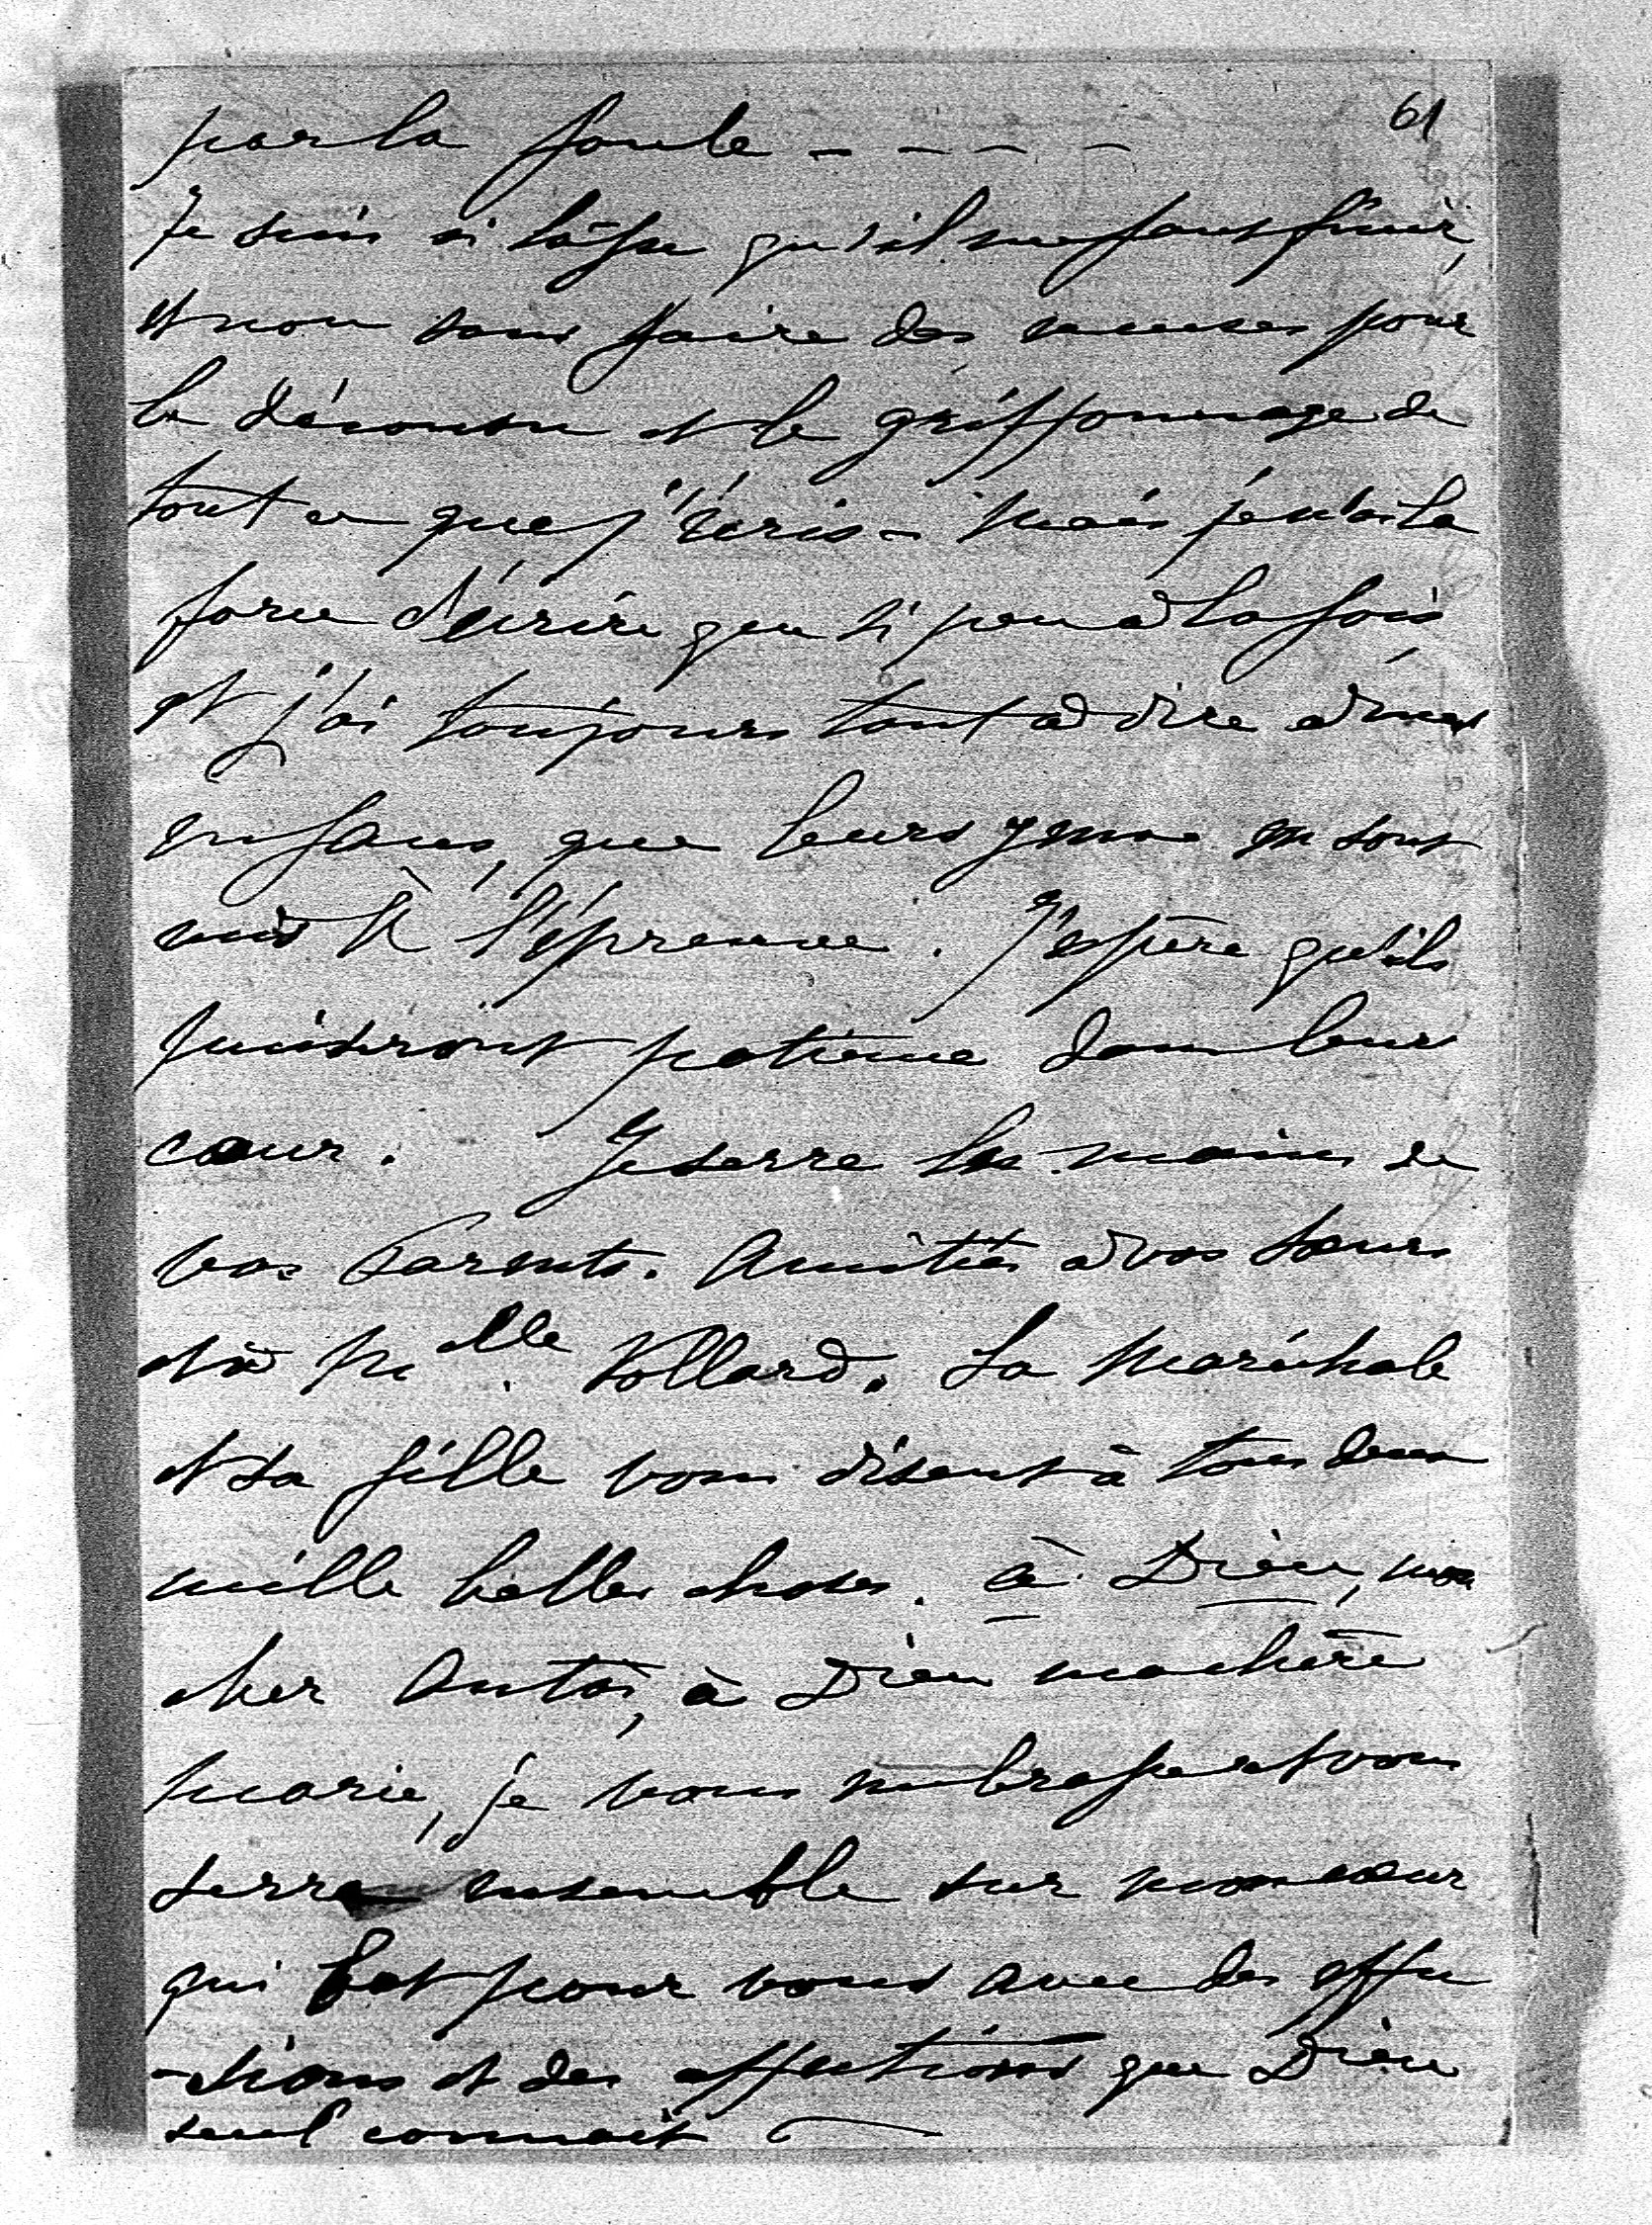 61
par la foule - - - - -
Je suis si lasse qu'il me faut finir,
et non sans faire des excuses pour
le décousu et le griffonnage de
tout ce que j'écris - Mais je n'ai la
force d'écrire que si peu à la fois
et j'ai toujours tant à dire à mes
enfans, que leurs yeux en sont
mis à l'épreuve. J'espère qu'ils
puiseront patience dans leur
cœur. Je serre les mains de
vos Parents. Amitiés à vos sœurs
et à Melle Vollard. La Maréchale
et sa fille vous disent à tous deux
mille belles choses. à Dieu, mon
cher Antoi, à Dieu ma chère
Marie, je vous embrasse et vous
serre ensemble sur mon cœur
qui bat pour vous avec des effu
-sions et des affections que Dieu
seul connait